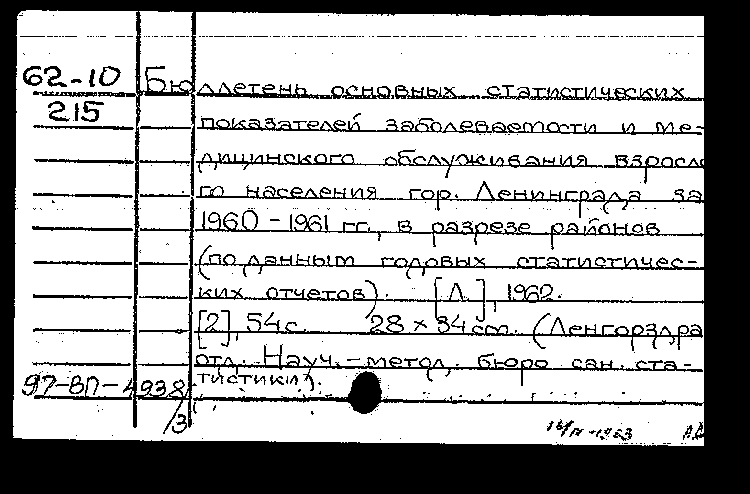 62-10 Бюллетень основных статистических
215
показателей заболеваемости и ме-
дицинского обслуживания взросло
го населения гор. Ленинграда за
1960-1961 гг., в разрезе районов
(по данным годовых статистичес-
ких отчетов). [Л.], 1962.
[2], 54 с. 28 × 34 cm. (Ленгорздра
отд. Науч.-метод. бюро сан. ста-
97-ВП-4938 тистики).
/3